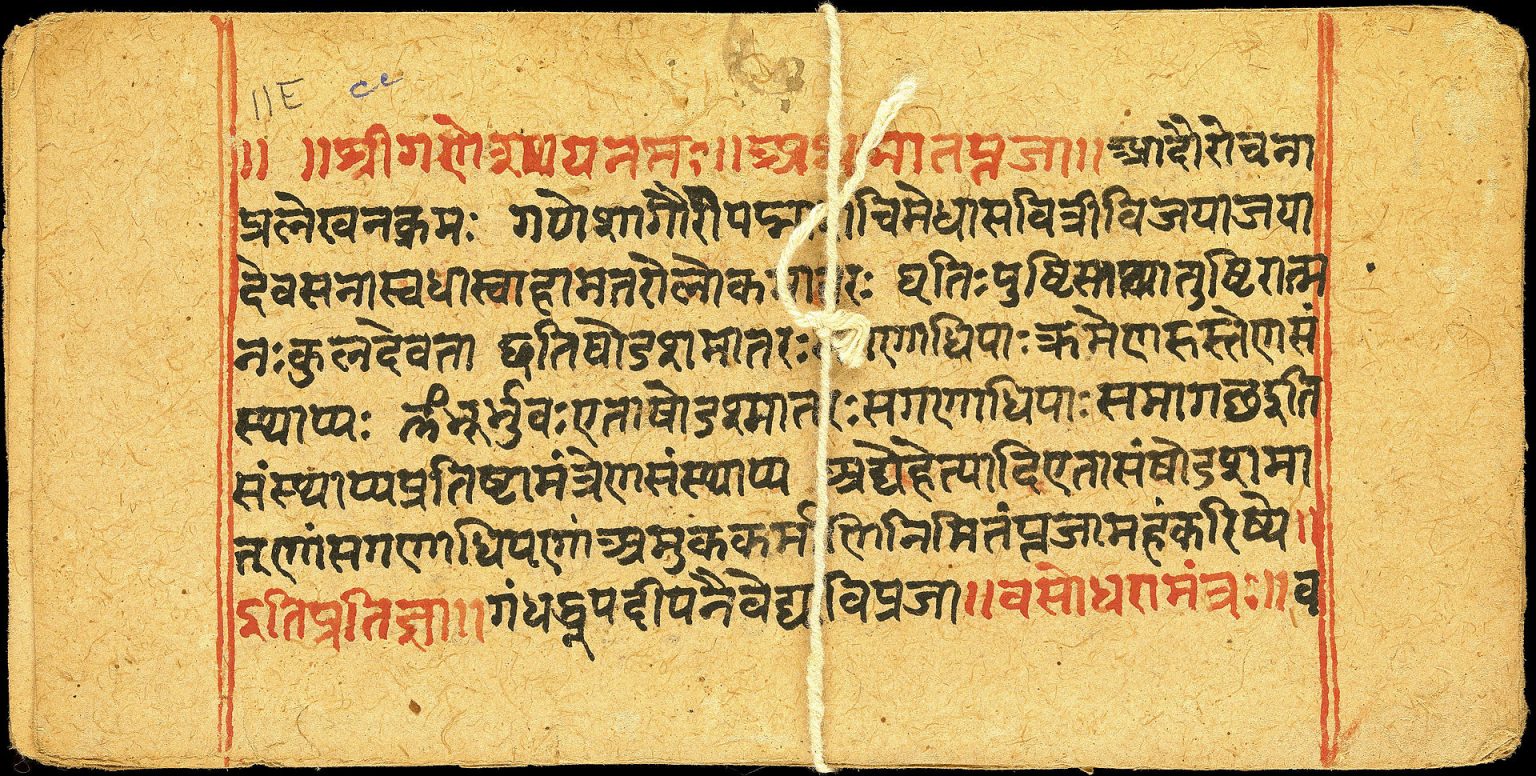 ॥E ce
॥ ॥श्रीगणेशायनमः॥अथ मातपूजा॥आदौरोचना
प्रलेखनक्रमः गणेशागौरीपद्मा चिमेधासवित्रीविजयाजया
देवसनास्वधास्वाहामतरोलोकमातरः धृतिःपुष्टिस्तथातुष्टिरात्म
नःकुलदेवता ह्यतिषोडशमातरः णाधिपाःक्रमेणहस्तेणसं
स्थाप्यः ॐभूर्भुवःएताषोडश्मातरःसगणाधिपाःसमागछइति
संस्थाप्यप्रतिष्टामंत्रेणसंस्थाप्य अद्येहेत्यादिएतासंषोडशमा
तृणांसगणाधिपणांअमुककर्माणिनिमितंपूजामहंकरिष्ये॥
इतिप्रतिज्ञा॥गंधधूपदीपनैवेद्य विपूजा॥वसोधरामंत्रः॥व